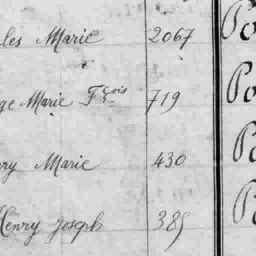 les Marie 2067 Po
ge Marie Fçois 719 Po
ry Marie 430 Po
Henry Joseph 385 Po